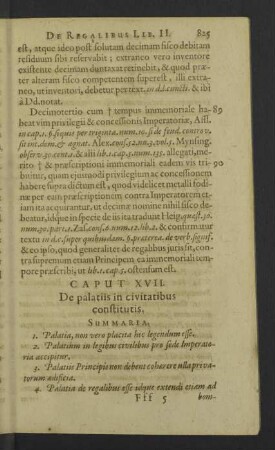 DE REGALIBUS LIB. II. 825
est, atque ideo post solutam decimam fisco debitam
residuum sibi reservabit; extraneo vero inventore
existente decimam duntaxat retinebit, & quod præ-
ter alteram fisco competentem superest, illi extra-
neo, ut inventori, debetur per text. in d.l. cunctis. & ibi
à Dd. notat.
Decimotertio cum † tempus immemoriale ha- 89
beat vim privilegii & concessionis Imperatoriæ, Aiff.
in cap. 1. § si quis per triginta. num. 10. si de feud. contro v.
sit int. dom. & agnat. Alex. cons. 12. num. 3. vol. 5. Mynsing.
observ. 30. cent. 2. & alii lib. 1. cap. 5. num. 135. allegati, me-
rito † & præscriptioni immemoriali eadem vis tri- 90
buitur, quam ejusmodi privilegium ac concessionem
habere supra dictum est, quod videlicet metalli fodi-
næ per eam præscriptionem contra Imperatorem et-
iam ita acquirantur, ut decimæ nomine nihil fisco de-
beatur, idque in specie de iis ita tradunt Heig. quæst. 16.
num. 30. part. 1. Zas. cons. 2. num. 12. lib. 2. & confirmatur
textu in d.c. super quibusdam. § præterea. de verb. signif.
& eo ipso, quod generaliter de regalibus jurisd. con-
tra supremum etiam Principem ex immemoriali tem-
pore præscribi, ut lib. 1. cap. 5. ostensum est.
CAPUT XVII.
De palatiis in civitatibus
constitutis.
SUMMARIA.
1. Palatia, non vero placita hic legendum esse.
2. Palatium in legibus civilibus pro sede Imperato-
ria accipitur.
3. Palatiis Principis non debent cohærere ulla priva-
torum ædificia.
4. Palatia de regalibus esse idque extendi etiam ad
Fff 5 bona-